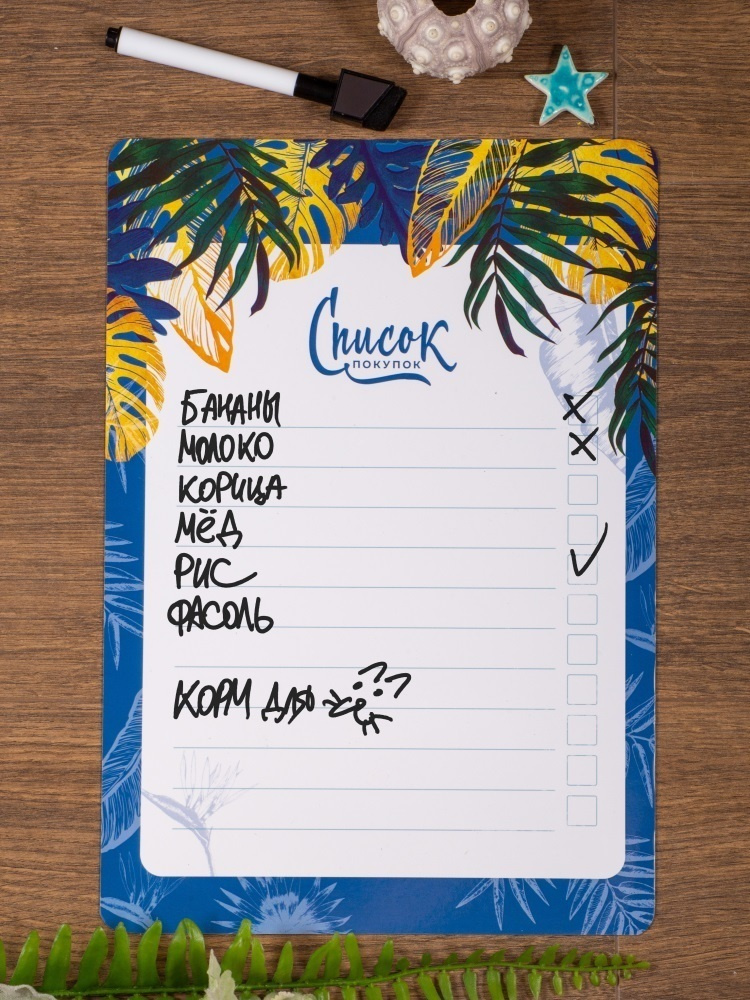 Список
ПОКУПОК
БАНАНЫ
МОЛОКО
КОРИЦА
МЁД
РИС
ФАСОЛЬ
КОРМ ДЛЯ